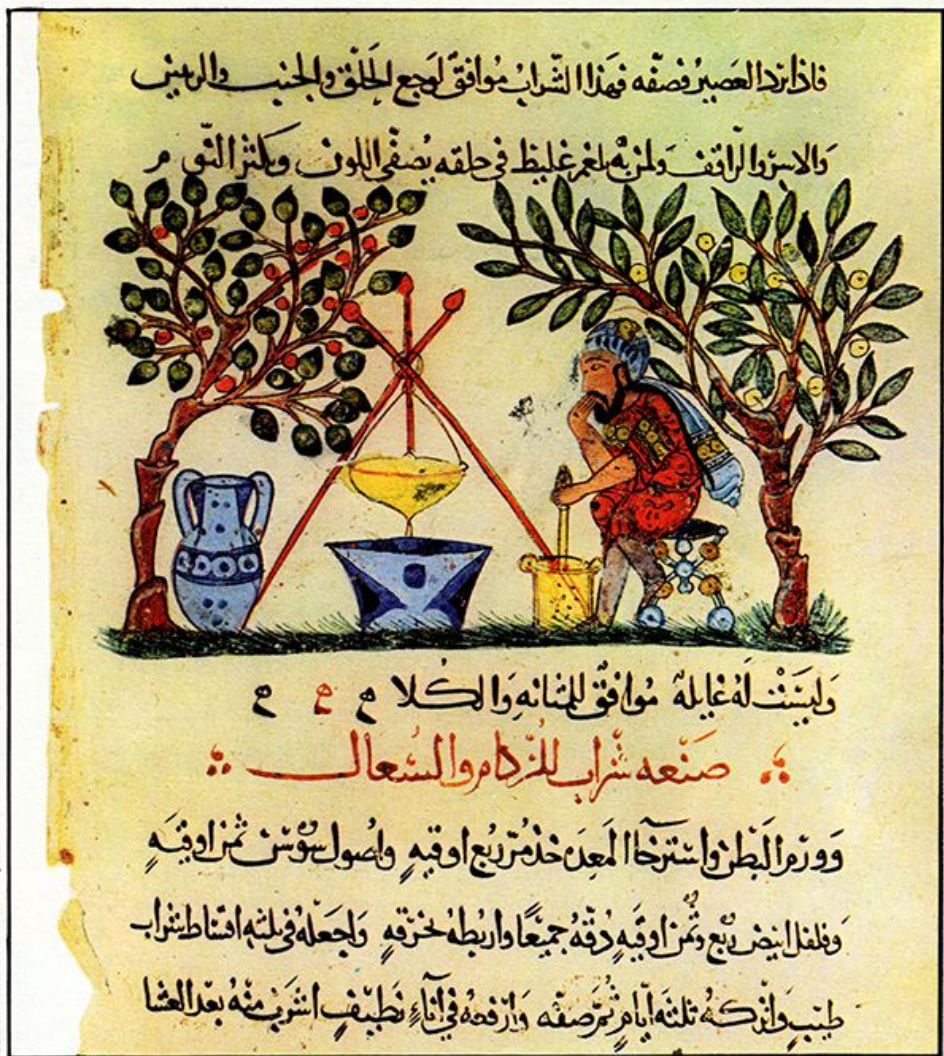 فاذا برد العصير فصفه فهذا الشراب موافق لوجع الحلق والجنب والرئين
والاسر والراقف ولمن به بلغم غليظ في حلقه يصفي اللون ويكثر النوم
وليست له غايله موافق للمثانه والكلا
صنعه شراب للزكام والسعال
وورم البطن واسترخا المعده خذ مر ربع اوقيه واصول سوسن ثمن اوقيه
وفلفل ابيض ربع وثمن اوقيه دقه جميعا واربطه بخرقه واجعله في ثلثه اقساط شراب
طيب واتركه ثلثه ايام ثم صفه وارفعه في اناء نظيف اشرب منه بعد العشا